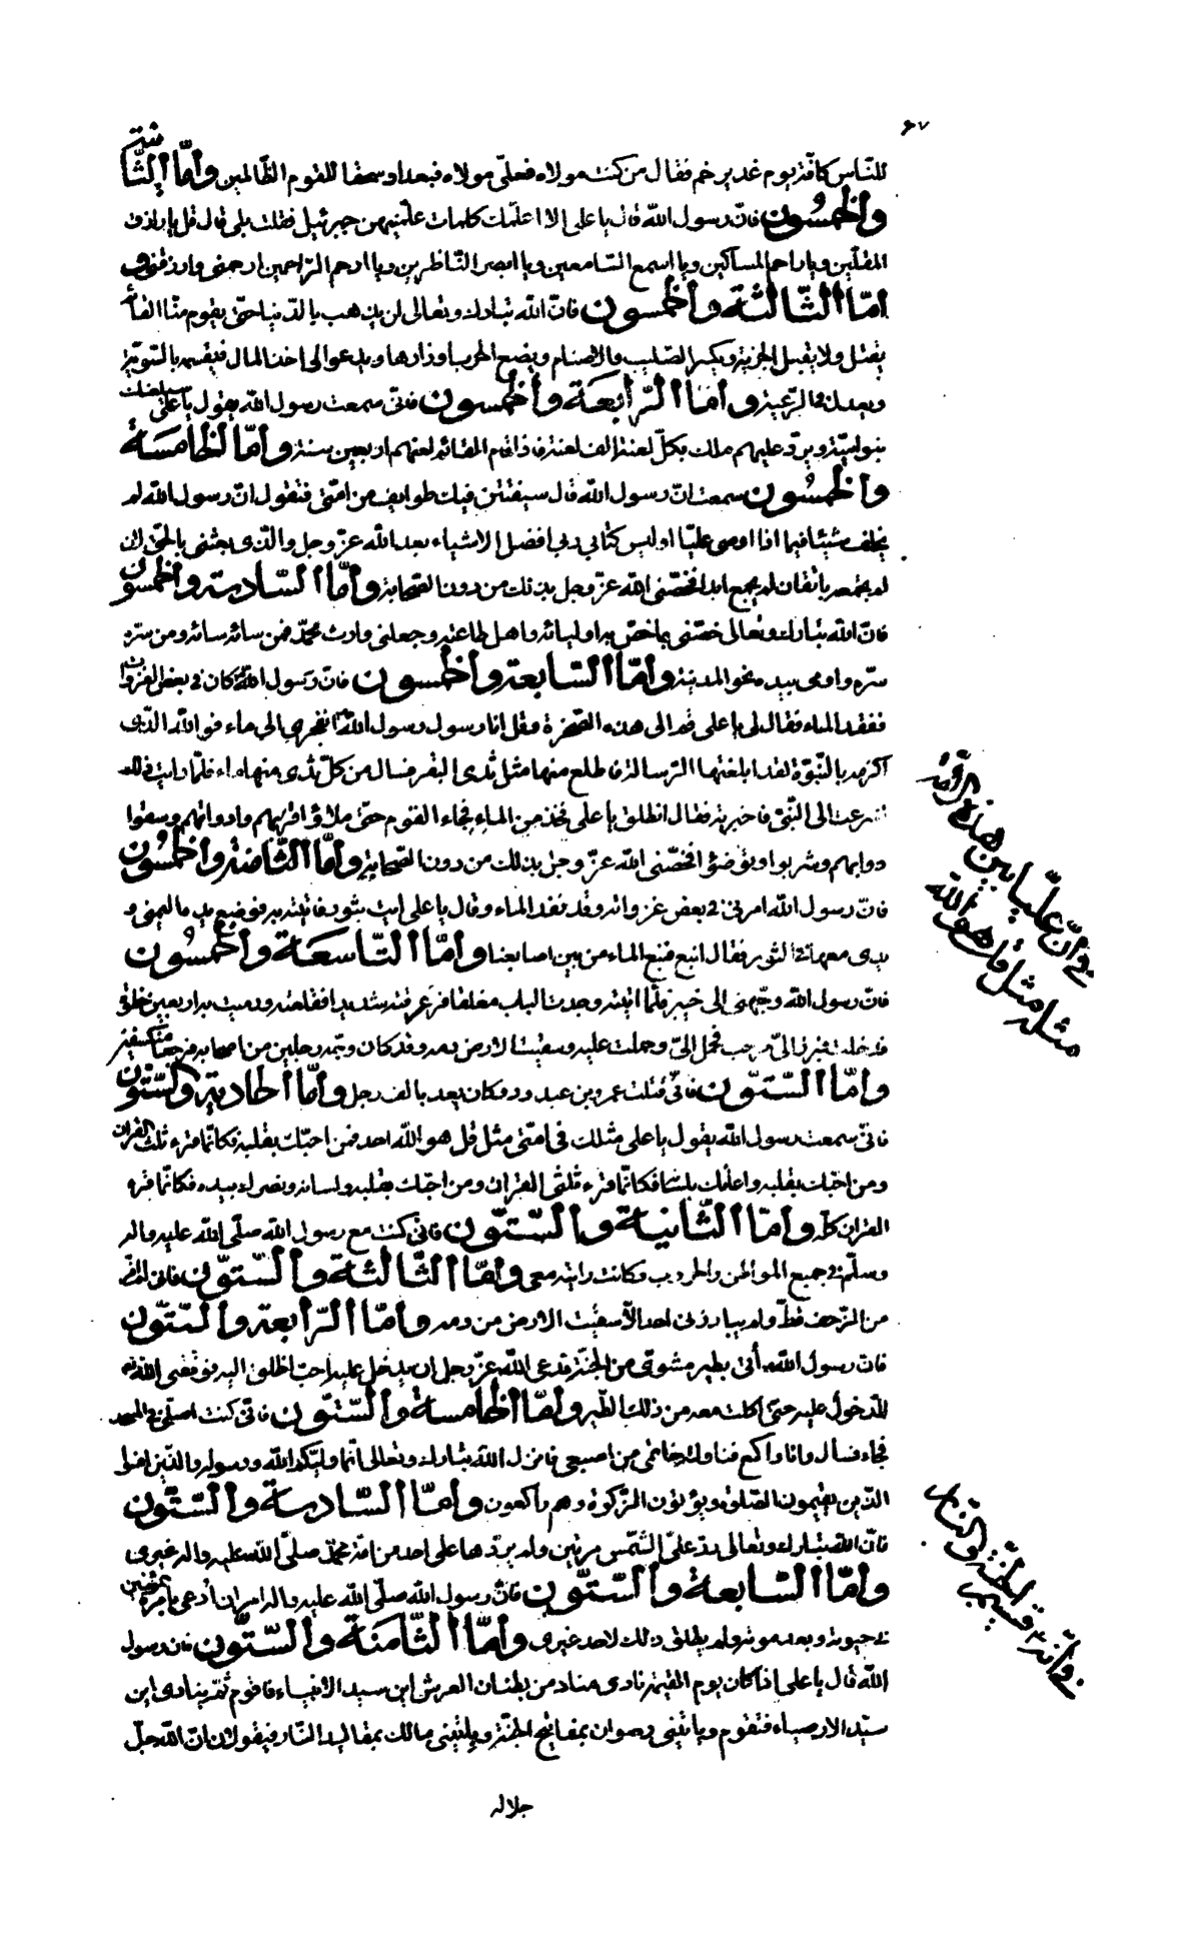 ٦٧
للناس كافة يوم غدير خم فقال من كنت مولاه فعلي مولاه فبعدا وسحقا للقوم الظالمين وأما الثانية
والخمسون فان رسول الله قال يا علي الا اعلمك كلمات علمنيهن جبرئيل فقلت بلى قال قل يا رازق
المقلين ويا راحم المساكين ويا اسمع السامعين ويا ابصر الناظرين ويا ارحم الراحمين ارحمني وارزقني و
اما الثالثة والخمسون فان الله تبارك وتعالى لن يذهب بالدنيا حتى يقوم منا القائم
يقتل ولا يقبل الجزية ويكسر الصليب والاصنام ويضع الحرب اوزارها ويدعو الى اخذ المال فيقسمه بالسوية
ويعدل في الرعية واما الرابعة والخمسون فاني سمعت رسول الله يقول يا علي سيلعنك
بنو امية ويرد عليهم ملك بكل لعنة الف لعنة فاذا قام القائم لعنهم اربعين سنة وأما الخامسة
والخمسون سمعت ان رسول الله قال سيفتتن فيك طوايف من امتي فتقول ان رسول الله لم
يخلف شيئا فبما اذا اوصى عليا اوليس كتاب ربي افضل الاشياء بعد الله عز وجل والذي بعثني بالحق لئن
لم يجمعه باتقان لم يجمع ابدا فخصني الله عز وجل بذلك من دون الصحابة وأما السادسة والخمسون
فان الله تبارك وتعالى خصني بما خص به اوليائه واهل طاعته وجعلني وارث محمد فمن سائه سائه ومن سره
سره واومى بيده نحو المدينة وأما السابعة والخمسون فان رسول الله كان في بعض الغزوات
ففقد الماء فقال لي يا علي قم الى هذه الصخرة وقل انا رسول رسول الله انفجري الي ماء فوالله الذي
اكرمه بالنبوة لقد ابلغتها الرسالة فاطلع منها مثل ثدي البقر فسال من كل ثدي منها ماء فلما رايت ذلك
اسرعت الى النبي فاخبرته فقال انطلق يا علي فخذ من الماء فجاء القوم حتى ملاؤا قربهم واداواتهم وسقوا
دوابهم وشربوا وتوضؤا فخصني الله عز وجل بذلك من دون الصحابة وأما الثامنة والخمسون
فان رسول الله امرني في بعض غزواته وقد نفد الماء وقال يا علي ايت بتور فاتيته به فوضع يده اليمنى و
يدي معها في التور فقال انبع فنبع الماء من بين اصابعنا وأما التاسعة والخمسون
فان رسول الله وجهني الى خيبر فلما اتيته وجدت الباب مغلقا فزعزعته شديدا فقلعته ورميت به اربعين خطوة
فدخلت فبرز الي مرحب فحمل الي وحملت عليه وسقيت الارض من دمه وقد كان وجه رجلين من اصحابه فرجعا منكسفين
وأما الستون فاني قتلت عمرو بن عبد ود وكان يعد بالف رجل وأما الحادية والستون
فاني سمعت رسول الله يقول يا علي مثلك في امتي مثل قل هو الله احد فمن احبك بقلبه فكانما قرء ثلث القران
ومن احبك بقلبه واعانك بلسانه فكانما قرء ثلثي القران ومن احبك بقلبه ولسانه ونصرك بيده فكانما قرء
القران كله وأما الثانية والستون فاني كنت مع رسول الله صلى الله عليه واله
وسلم في جميع المواطن والحروب وكانت رايته معي وأما الثالثة والستون فاني لم افر
من الزحف قط ولم يبارزني احد الا سقيت الارض من دمه وأما الرابعة والستون
فان رسول الله أتي بطير مشوي من الجنة فدعى الله عز وجل ان يدخل عليه احب الخلق اليه فوفقني الله
للدخول عليه حتى اكلت معه من ذلك الطير وأما الخامسة والستون فاني كنت اصلي في المسجد
فجاء سائل وانا راكع فناولته خاتمي من اصبعي فانزل الله تبارك وتعالى انما وليكم الله ورسوله والذين امنوا
الذين يقيمون الصلوة ويؤتون الزكوة وهم راكعون وأما السادسة والستون
فان الله تبارك وتعالى رد علي الشمس مرتين ولم يردها على احد من امة محمد صلى الله عليه واله غيري
وأما السابعة والستون فان رسول الله صلى الله عليه واله امر ان أدعى بامرة المؤمنين
في حيوته وبعد موته ولم يطلق ذلك لاحد غيري وأما الثامنة والستون فان رسول
الله قال يا علي اذا كان يوم القيمة نادى مناد من بطنان العرش اين سيد الانبياء فاقوم ثم ينادي اين
سيد الاوصياء فتقوم وياتيني رضوان بمفاتيح الجنة ويأتيني مالك بمقاليد النار فيقولان ان الله جل
جلاله
في ان عليا بين هذه الامة
مثله مثل قل هو الله
في انه قسيم الجنة والنار